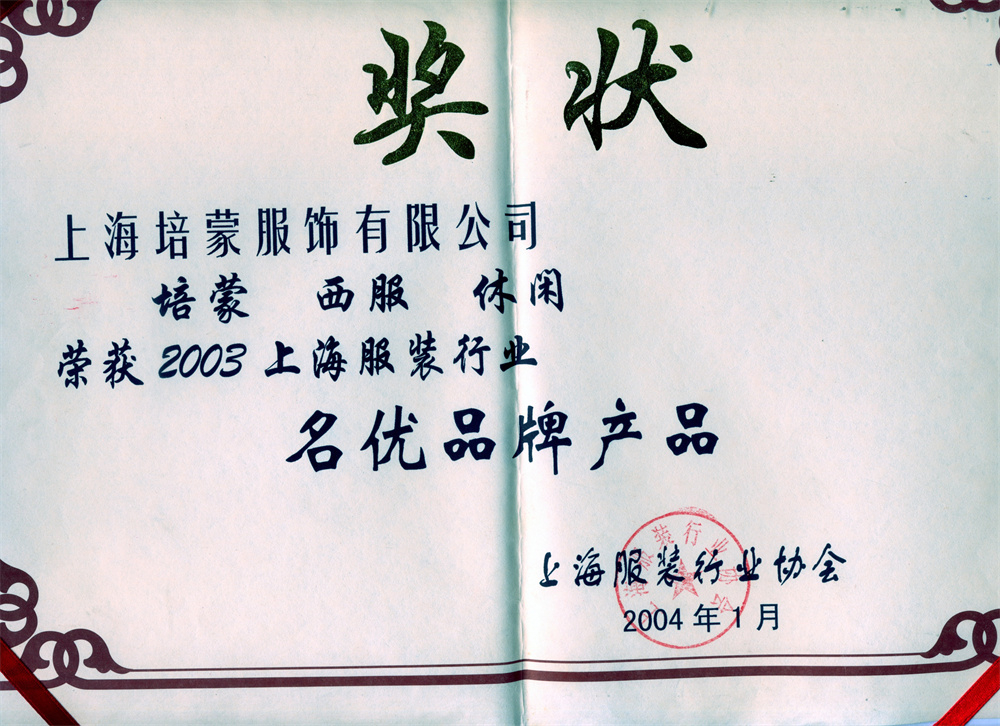 奖状
上海培蒙服饰有限公司
培蒙 西服 休闲
荣获2003上海服装行业
名优品牌产品
上海服装行业协会
2004年1月
上海服装行业协会